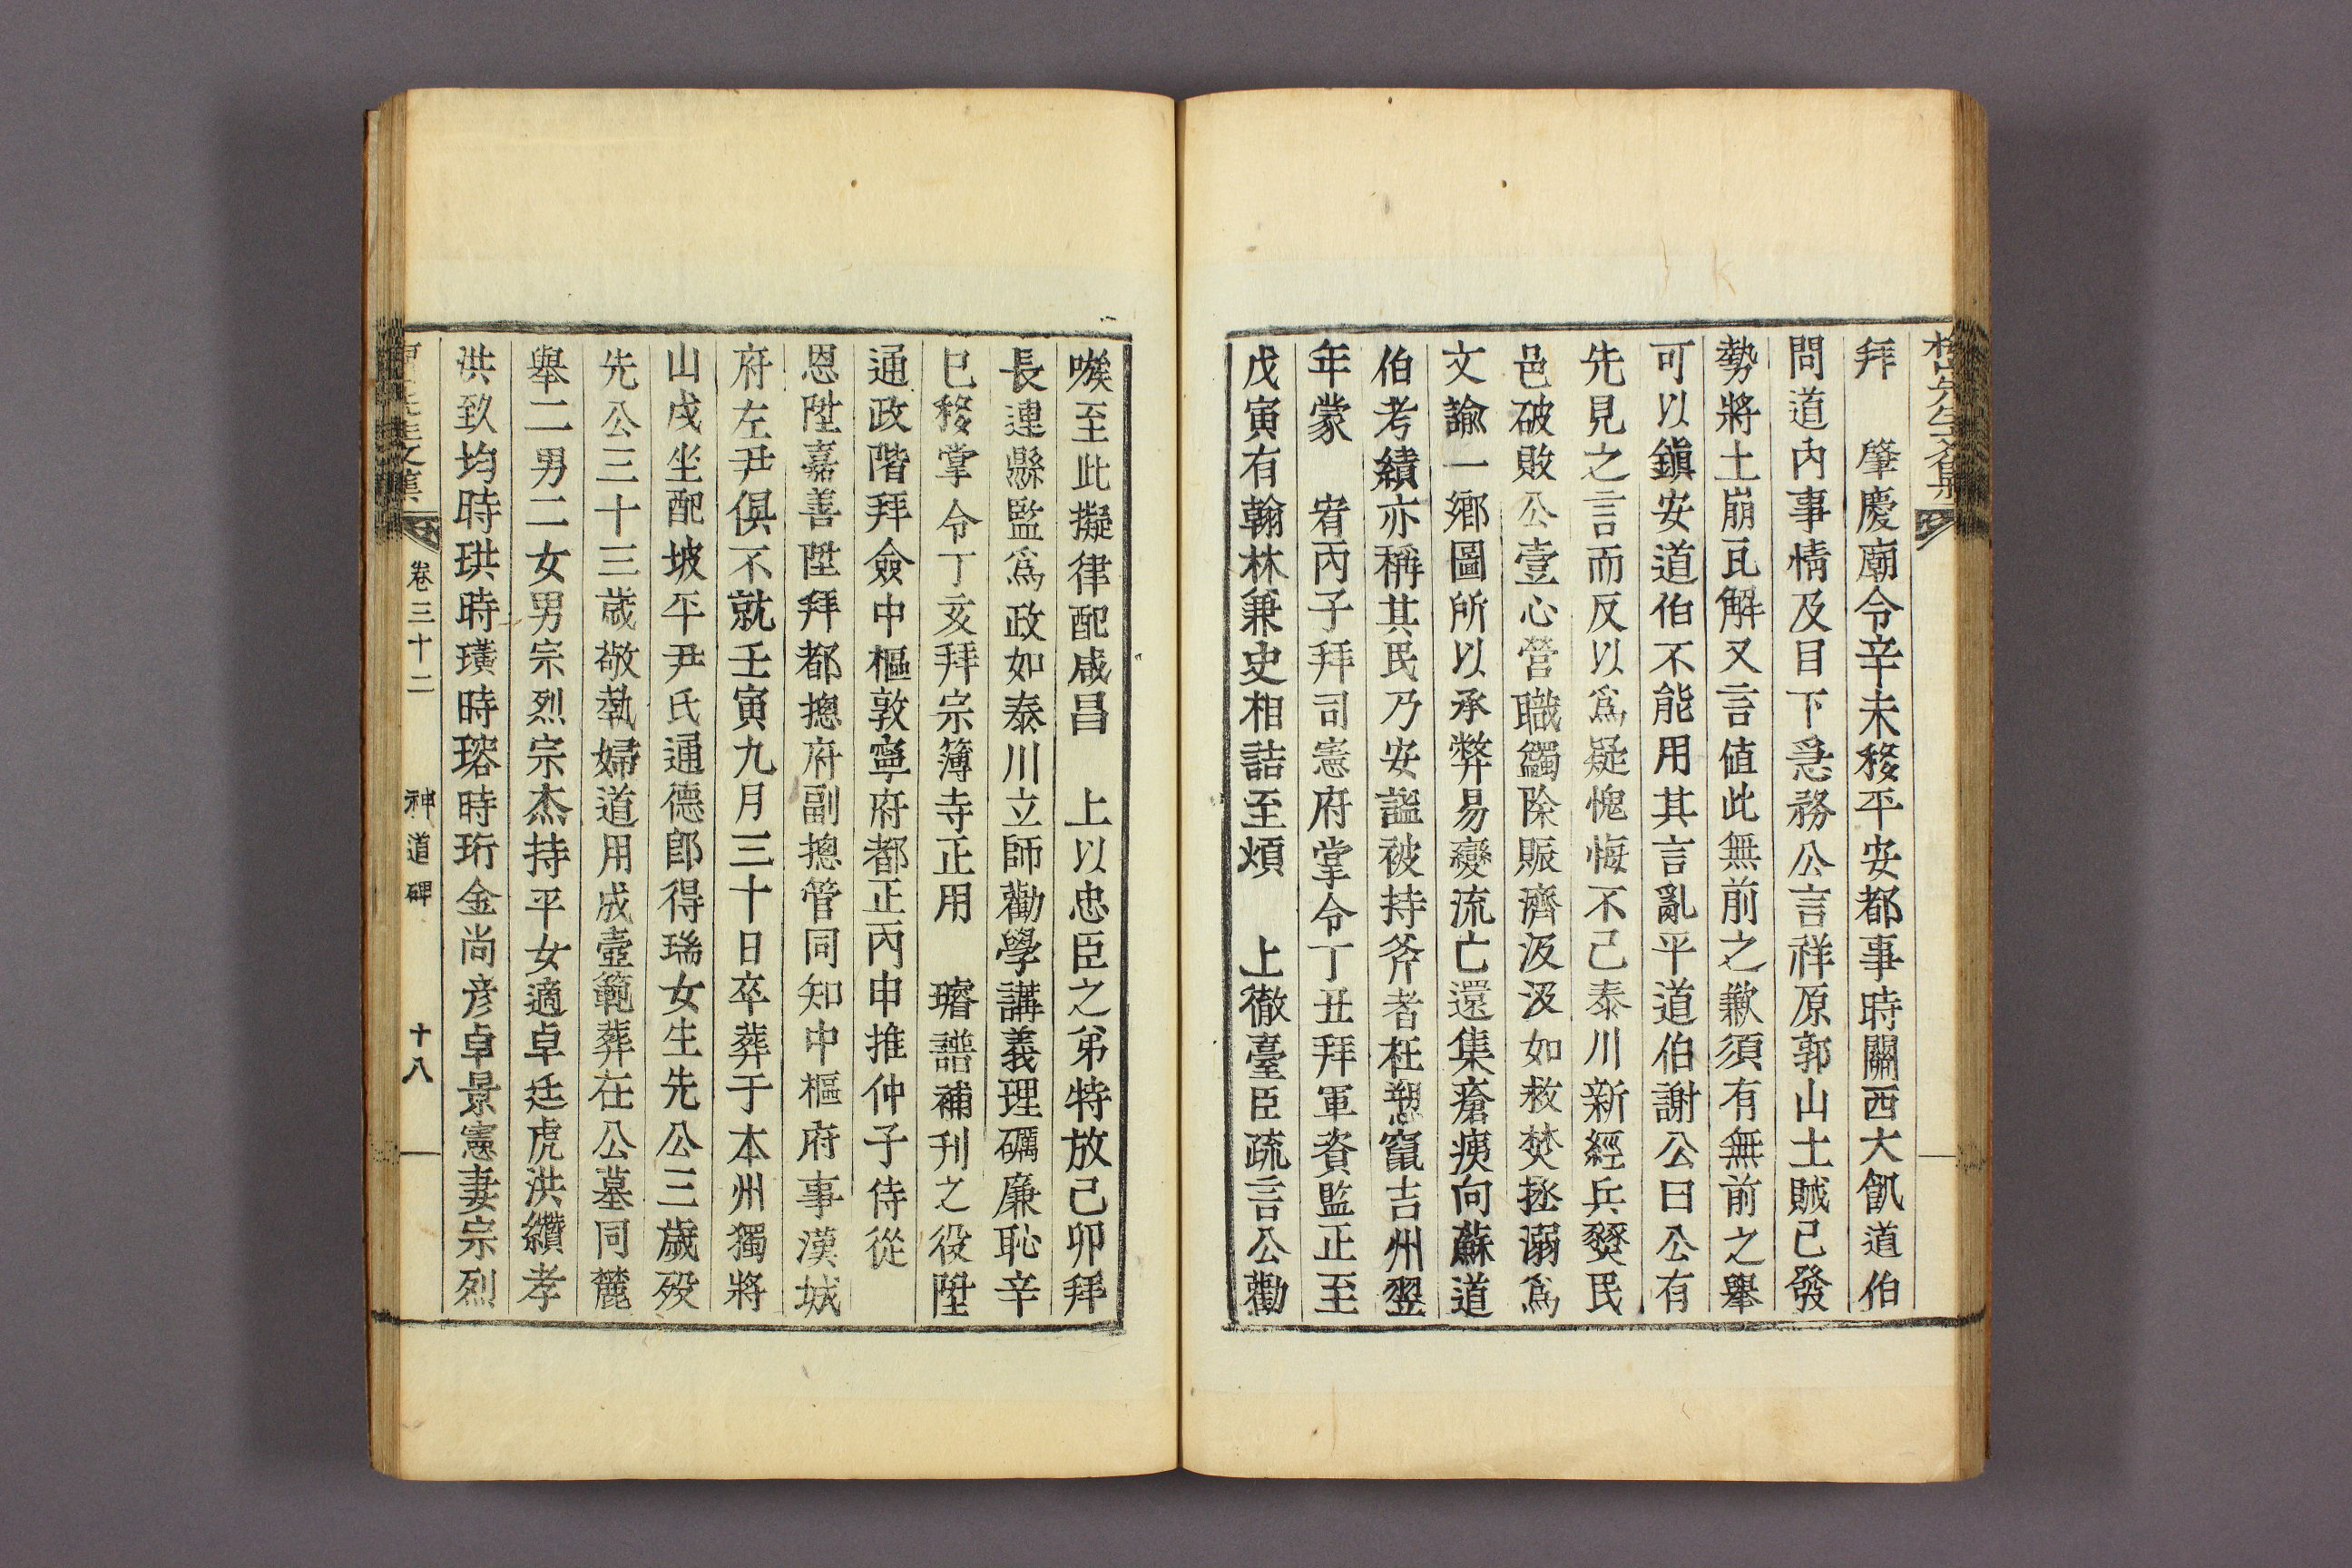 拜　肇慶廟令辛未移平安都事時關西大飢道伯
問道內事情及目下急務公言祥原郭山土賊已發
勢將土崩瓦解又言値此無前之歉須有無前之擧
可以鎭安道伯不能用其言亂平道伯謝公曰公有
先見之言而反以爲疑愧悔不已泰川新經兵燹民
邑破敗公壹心營職蠲除賑濟汲汲如救焚拯溺爲
文諭一鄕圖所以承弊易變流亡還集瘡痍向蘇道
伯考績亦稱其民乃安謐被持斧者枉愬竄吉州翌
年蒙　宥丙子拜司憲府掌令丁丑拜軍資監正至
戊寅有翰林兼史相詰至煩　上徹臺臣疏言公勸
嗾至此擬律配咸昌　上以忠臣之弟特放己卯拜
長連縣監爲政如泰川立師勸學講義理礪廉恥辛
巳移掌令丁亥拜宗簿寺正用　璿譜補刊之役陞
通政階拜僉中樞敦寧府都正丙申推仲子侍從
恩陞嘉善陞拜都摠府副摠管同知中樞府事漢城
府左尹俱不就壬寅九月三十日卒葬于本州獨將
山戌坐配坡平尹氏通德郎得瑞女生先公三歲歿
先公三十三歲敬執婦道用成壼範葬在公墓同麓
擧二男二女男宗烈宗杰持平女適卓廷虎洪纘孝
洪㺵均時珙時璜時瑢時珩金尙彦卓景憲妻宗烈
卷三十二　神道碑　十八